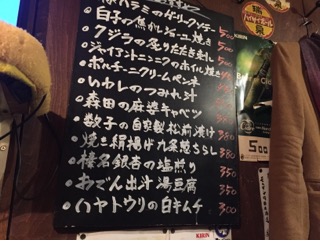 白子の焦がしジューユ焼き 500
クジラの炙りたたき刺し
ジャイアントニンニクのホイル焼き
ポルチーニクリームペンネ
いわしのつみれ汁
森田の麻婆キャベツ
数子の自家製松前漬け 380
焼き絹揚げ九条葱さらし 380
榛名銀杏の塩煎り 350
おでん出汁湯豆腐 350
ハヤトウリの白キムチ 300
KIRIN
500